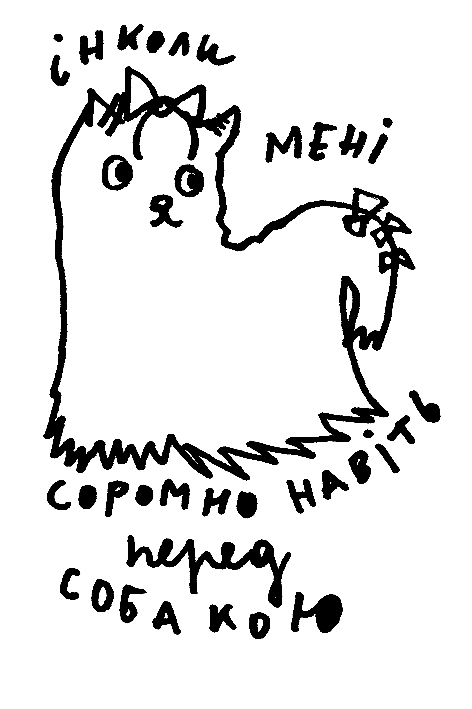 інколи
мені
соромно навіть
перед
собакою